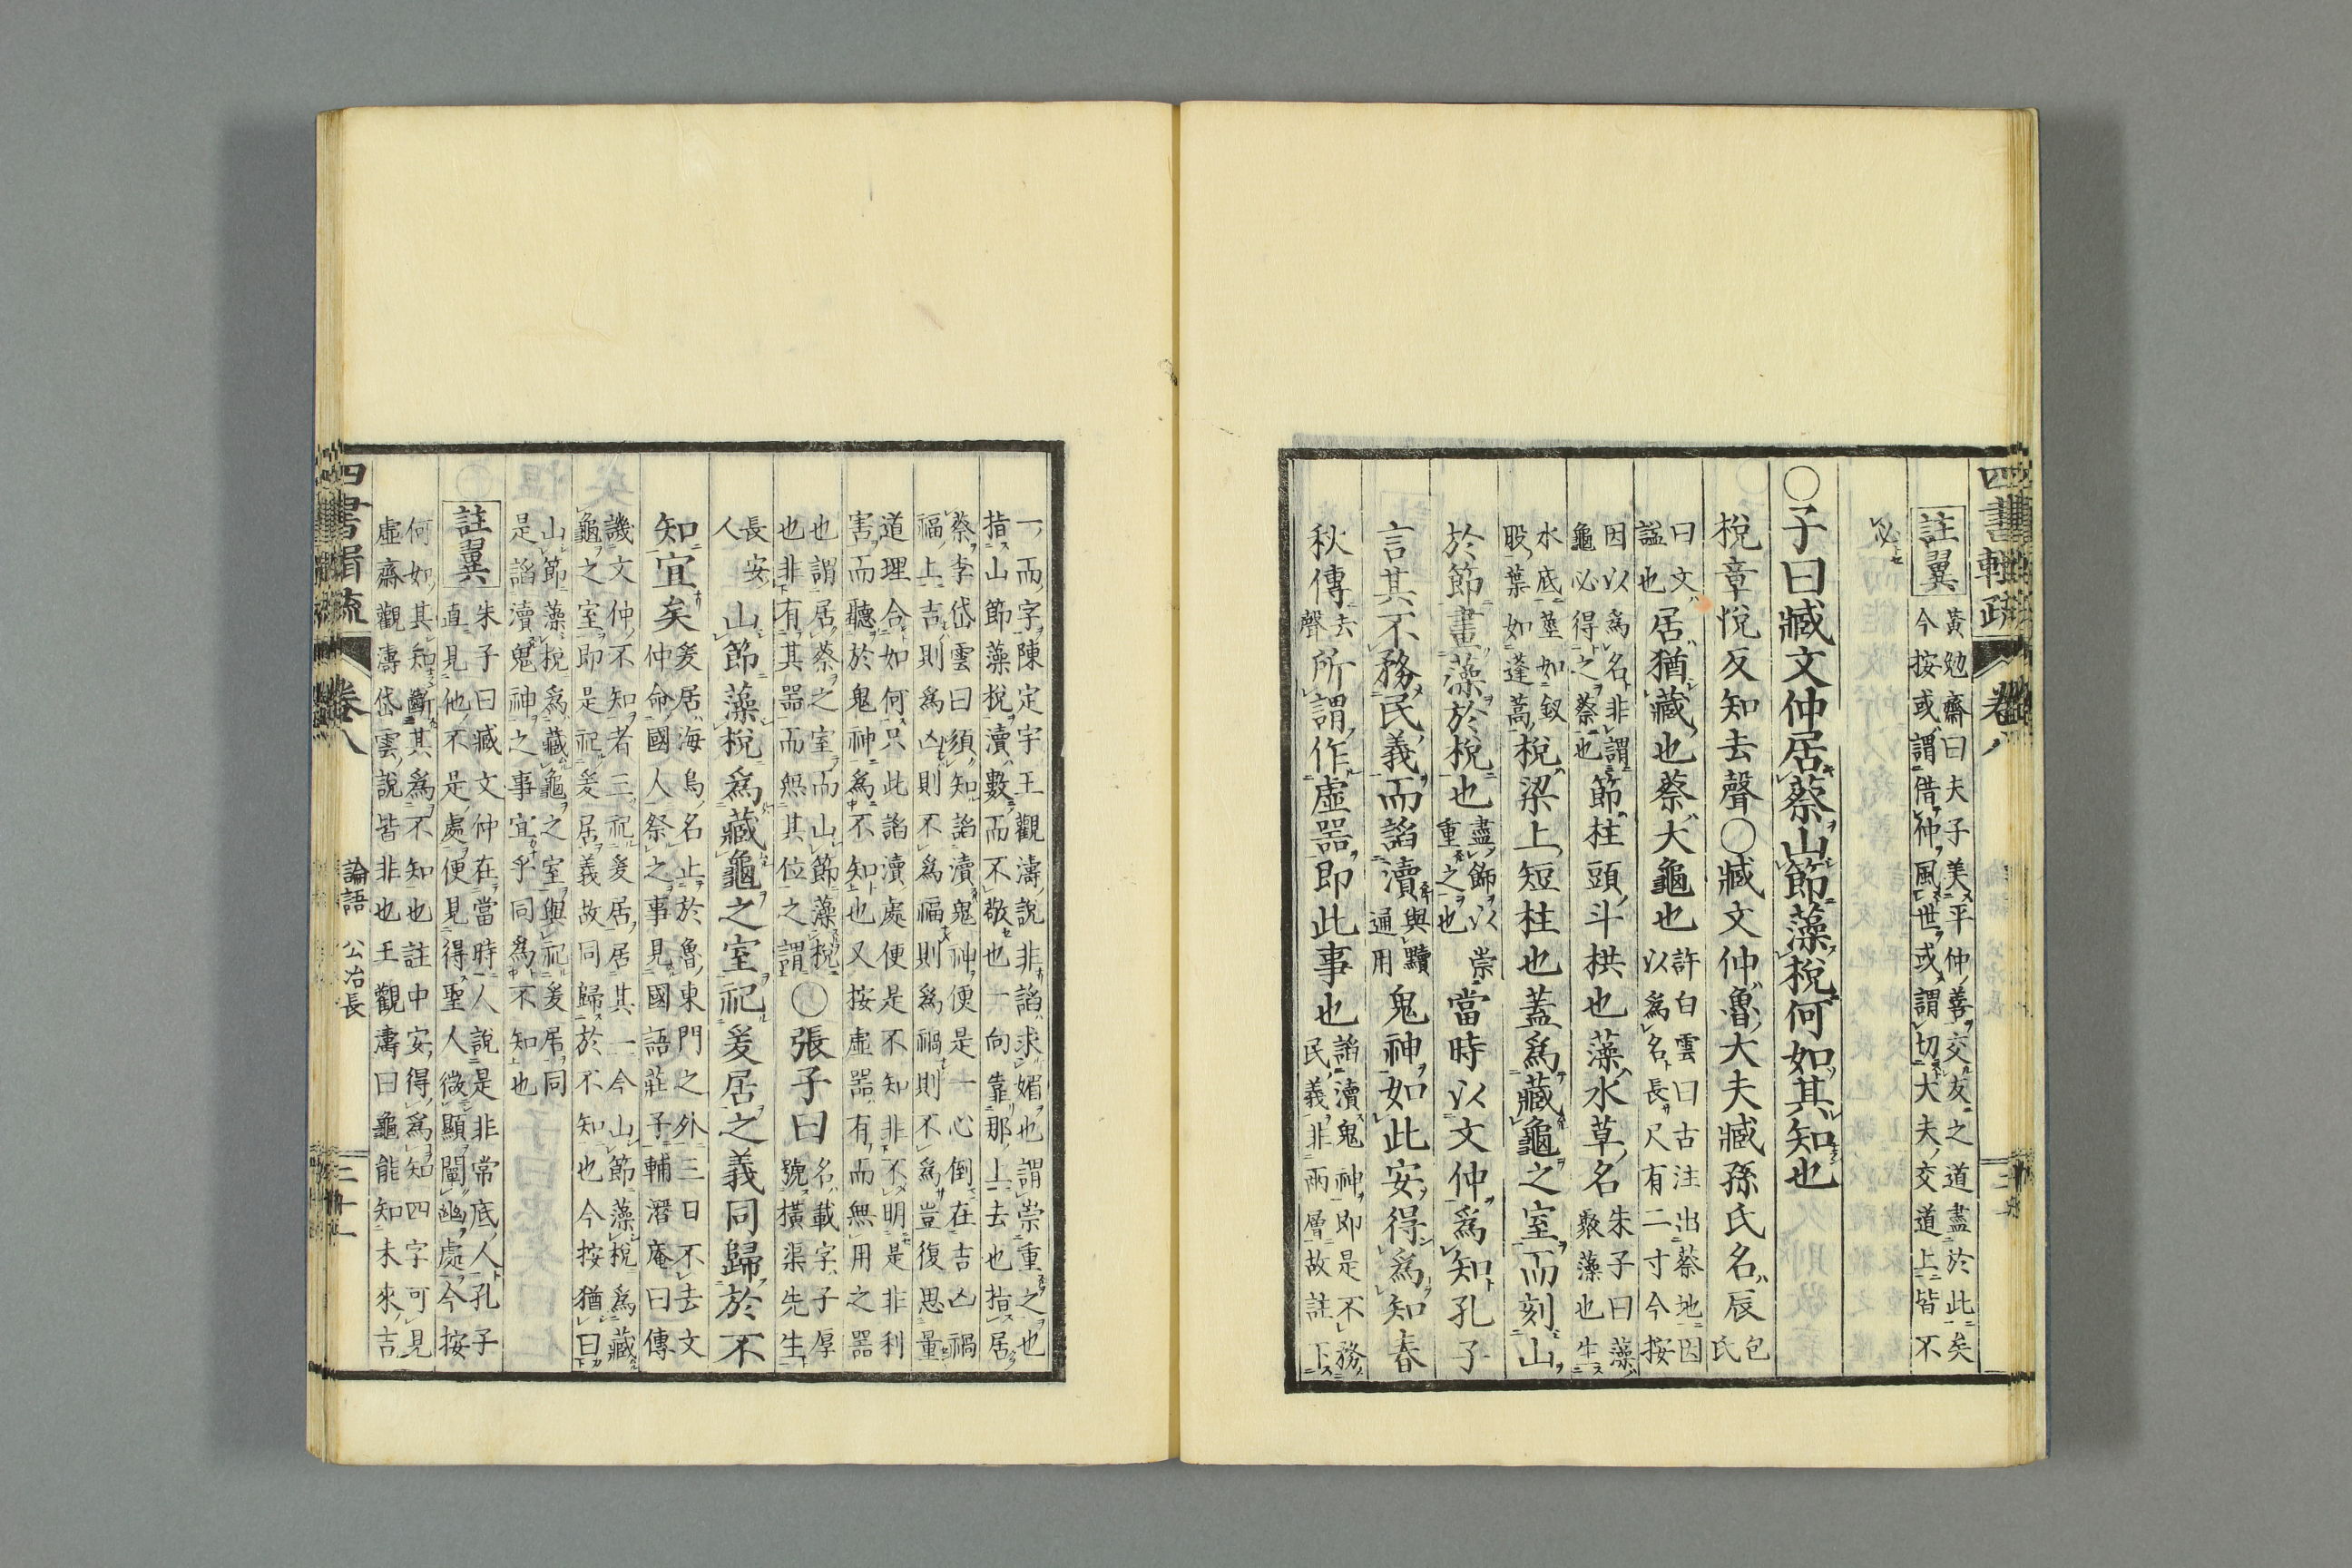 四書輯疏 卷八
註翼 黃勉齋曰夫子美平仲善交友之道盡於此矣
今按或謂借仲風世或謂切大夫交道上皆不
必
○子曰臧文仲居蔡山節藻梲何如其知也
梲章悅反知去聲○臧文仲魯大夫臧孫氏名辰 包氏
曰文
謚也 居猶藏也蔡大龜也 許白雲曰古注出蔡地因
以爲名長尺有二寸今按
因以爲名非謂
龜必得之蔡也 節柱頭斗栱也藻水草名 朱子曰藻
聚藻也生
水底莖如釵
股葉如蓬蒿 梲梁上短柱也蓋爲藏龜之室而刻山
於節畫藻於梲也 盡飾以崇
重之也 當時以文仲爲知孔子
言其不務民義而諂瀆 與黷
通用 鬼神如此安得爲知春
秋傳 去
聲 所謂作虛器即此事也 諂瀆鬼神即是不務
民義非兩層故註下
一而字陳定宇王觀濤說非諂求媚也謂崇重之也
指山節藻梲瀆數而不敬也一向靠那上去也指居
蔡李岱雲曰須知諂瀆鬼神便是一心倒在吉凶禍
福上吉則爲凶則不爲福則爲禍則不爲豈復思量
道理合如何只此諂瀆處便是不知非不明是非利
害而聽於鬼神爲不知也又按虛器有而無用之器
也謂居蔡之室而山節藻梲
也非有其器而無其位之謂 ○張子曰 名載字子厚
號橫渠先生
長安
人 山節藻梲爲藏龜之室祀爰居之義同歸於不
知宜矣 爰居海鳥名止於魯東門之外三日不去文
仲命國人祭之事見國語莊子輔潛庵曰傳
譏文仲不知者三祀爰居居其一今山節藻梲爲藏
龜之室即是祀爰居義故同歸於不知也今按猶曰
山節藻梲爲藏龜之室與祀爰居同
是諂瀆鬼神之事宜乎同爲不知也
註翼 朱子曰臧文仲在當時人說是非常底人孔子
直見他不是處便見得聖人微顯闡幽處今按
何如其知斷其爲不知也註中安得爲知四字可見
虛齋觀濤岱雲說皆非也王觀濤曰龜能知未來吉
四書輯疏 卷八 論語 公冶長 二十二